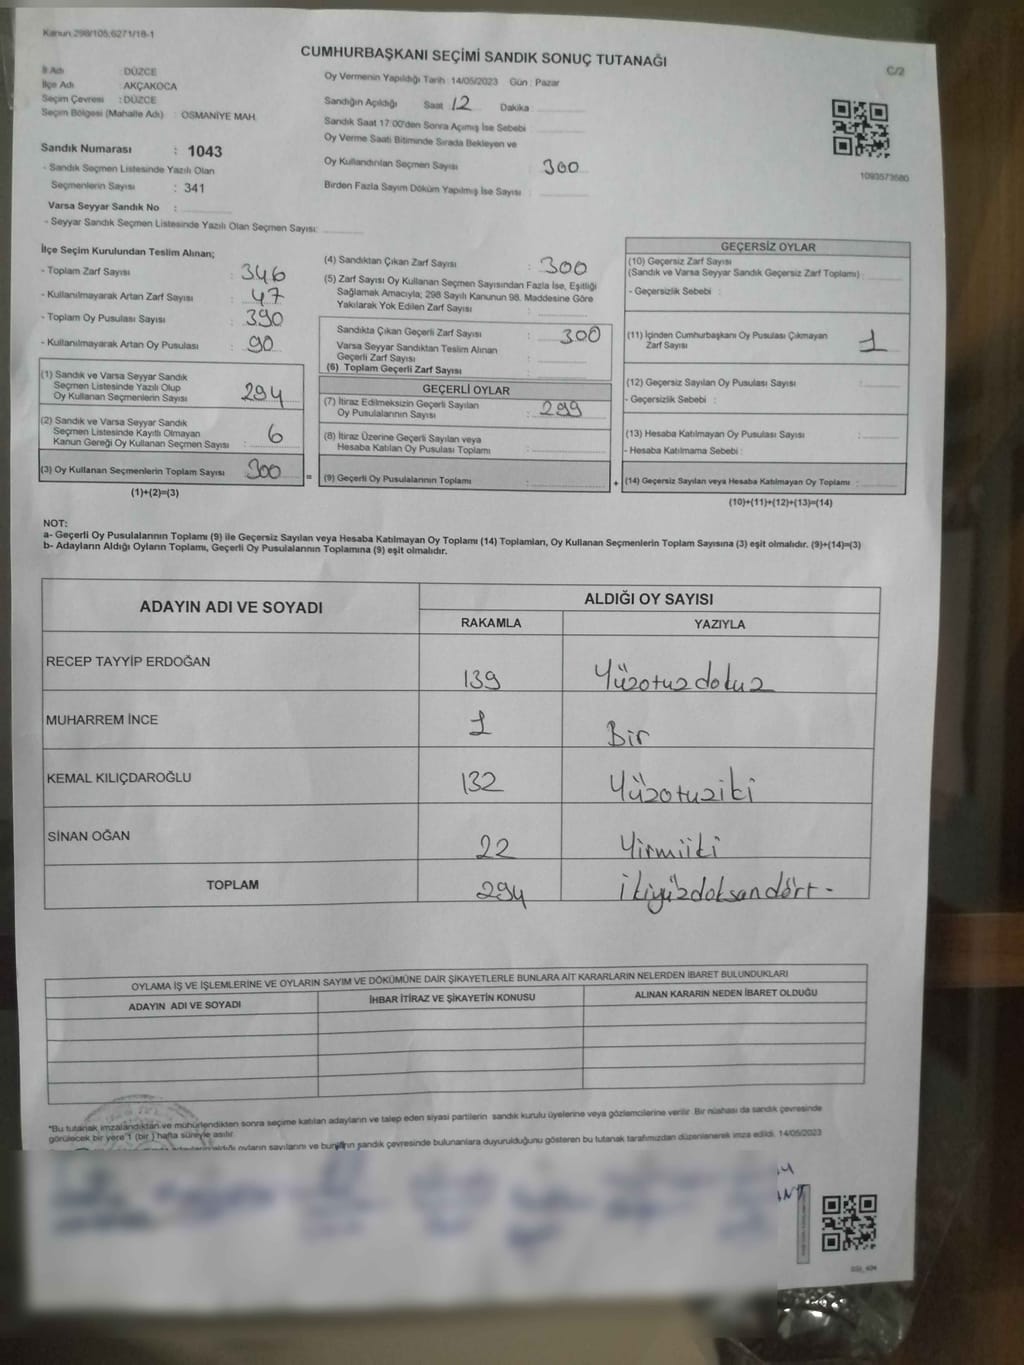 Kanun 298/105;6271/18-1
CUMHURBAŞKANI SEÇİMİ SANDIK SONUÇ TUTANAĞI
C/2
İl Adı : DÜZCE
İlçe Adı : AKÇAKOCA
Seçim Çevresi : DÜZCE
Seçim Bölgesi (Mahalle Adı) : OSMANİYE MAH.
Sandık Numarası : 1043
- Sandık Seçmen Listesinde Yazılı Olan
Seçmenlerin Sayısı : 341
Varsa Seyyar Sandık No :
- Seyyar Sandık Seçmen Listesinde Yazılı Olan Seçmen Sayısı:
Oy Vermenin Yapıldığı Tarih : 14/05/2023 Gün : Pazar
Sandığın Açıldığı Saat : 12 Dakika
Sandık Saat 17:00'den Sonra Açımış İse Sebebi
Oy Verme Saati Bitiminde Sırada Bekleyen ve
Oy Kullandırılan Seçmen Sayısı : 300
Birden Fazla Sayım Döküm Yapılmış İse Sayısı :
1093573680
İlçe Seçim Kurulundan Teslim Alınan;
- Toplam Zarf Sayısı : 346
- Kullanılmayarak Artan Zarf Sayısı : 47
- Toplam Oy Pusulası Sayısı : 390
- Kullanılmayarak Artan Oy Pusulası : 90
(1) Sandık ve Varsa Seyyar Sandık
Seçmen Listesinde Yazılı Olup
Oy Kullanan Seçmenlerin Sayısı : 294
(2) Sandık ve Varsa Seyyar Sandık
Seçmen Listesinde Kayıtlı Olmayan
Kanun Gereği Oy Kullanan Seçmen Sayısı : 6
(3) Oy Kullanan Seçmenlerin Toplam Sayısı : 300
(1)+(2)=(3)
(4) Sandıktan Çıkan Zarf Sayısı : 300
(5) Zarf Sayısı Oy Kullanan Seçmen Sayısından Fazla İse, Eşitliği
Sağlamak Amacıyla; 298 Sayılı Kanunun 98. Maddesine Göre
Yakılarak Yok Edilen Zarf Sayısı :
Sandıkta Çıkan Geçerli Zarf Sayısı : 300
Varsa Seyyar Sandıktan Teslim Alınan
Geçerli Zarf Sayısı :
(6) Toplam Geçerli Zarf Sayısı :
GEÇERLİ OYLAR
(7) İtiraz Edilmeksizin Geçerli Sayılan
Oy Pusulalarının Sayısı : 299
(8) İtiraz Üzerine Geçerli Sayılan veya
Hesaba Katılan Oy Pusulası Toplamı :
= (9) Geçerli Oy Pusulalarının Toplamı :
GEÇERSİZ OYLAR
(10) Geçersiz Zarf Sayısı
(Sandık ve Varsa Seyyar Sandık Geçersiz Zarf Toplamı) :
- Geçersizlik Sebebi :
(11) İçinden Cumhurbaşkanı Oy Pusulası Çıkmayan
Zarf Sayısı : 1
(12) Geçersiz Sayılan Oy Pusulası Sayısı :
- Geçersizlik Sebebi :
(13) Hesaba Katılmayan Oy Pusulası Sayısı :
- Hesaba Katılmama Sebebi :
+ (14) Geçersiz Sayılan veya Hesaba Katılmayan Oy Toplamı :
(10)+(11)+(12)+(13)=(14)
NOT:
a- Geçerli Oy Pusulalarının Toplamı (9) ile Geçersiz Sayılan veya Hesaba Katılmayan Oy Toplamı (14) Toplamları, Oy Kullanan Seçmenlerin Toplam Sayısına (3) eşit olmalıdır. (9)+(14)=(3)
b- Adayların Aldığı Oyların Toplamı, Geçerli Oy Pusulalarının Toplamına (9) eşit olmalıdır.
ADAYIN ADI VE SOYADI ALDIĞI OY SAYISI
RAKAMLA YAZIYLA
RECEP TAYYİP ERDOĞAN 139 Yüzotuzdokuz
MUHARREM İNCE 1 Bir
KEMAL KILIÇDAROĞLU 132 Yüzotuziki
SİNAN OĞAN 22 Yirmiiki
TOPLAM 294 İkiyüzdoksandört -
OYLAMA İŞ VE İŞLEMLERİNE VE OYLARIN SAYIM VE DÖKÜMÜNE DAİR ŞİKAYETLERLE BUNLARA AİT KARARLARIN NELERDEN İBARET BULUNDUKLARI
ADAYIN ADI VE SOYADI İHBAR İTİRAZ VE ŞİKAYETİN KONUSU ALINAN KARARIN NEDEN İBARET OLDUĞU
*Bu tutanak imzalandıktan ve mühürlendikten sonra seçime katılan adayların ve talep eden siyasi partilerin sandık kurulu üyelerine veya gözlemcilerine verilir. Bir nüshası da sandık çevresinde
görülecek bir yere 1 (bir) hafta süreyle asılır.
aldığı oyların sayılarını ve bunların sandık çevresinde bulunanlara duyurulduğunu gösteren bu tutanak tarafımızdan düzenlenerek imza edildi. 14/05/2023